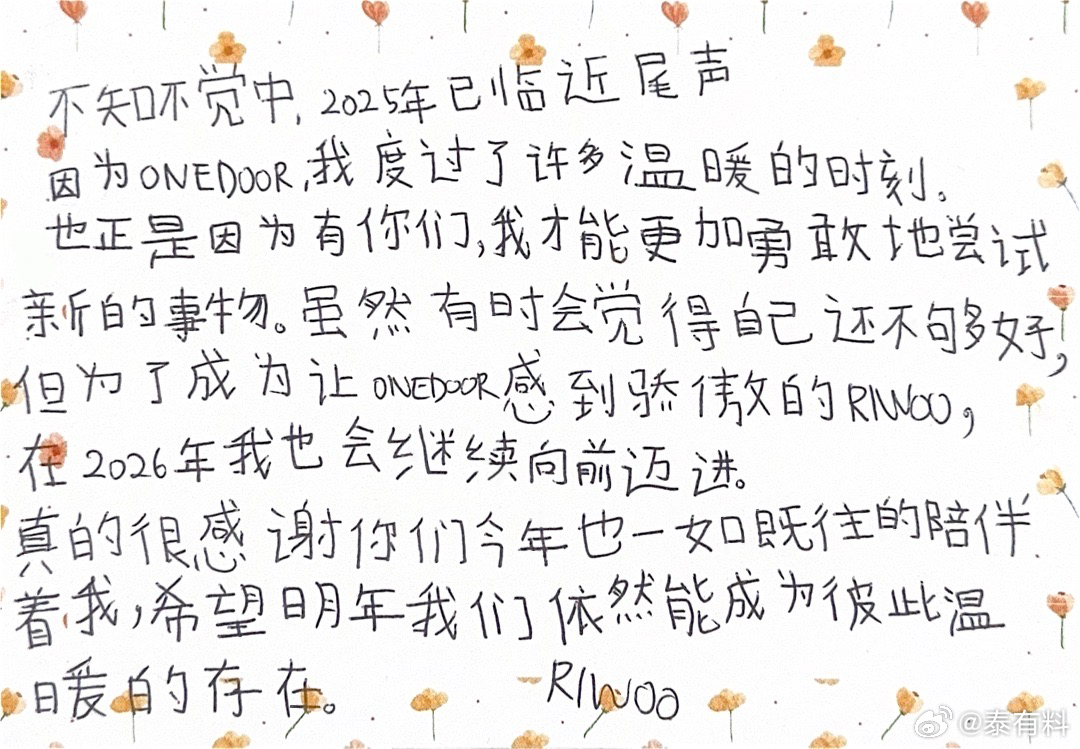 不知不觉中,2025年已临近尾声
因为ONEDOOR,我度过了许多温暖的时刻。
也正是因为有你们,我才能更加勇敢地尝试
新的事物。虽然有时会觉得自己还不够多好,
但为了成为让ONEDOOR感到骄傲的RIWOO,
在2026年我也会继续向前迈进。
真的很感谢你们今年也一如既往的陪伴
着我,希望明年我们依然能成为彼此温
暖的存在。 RIWOO
@泰有料